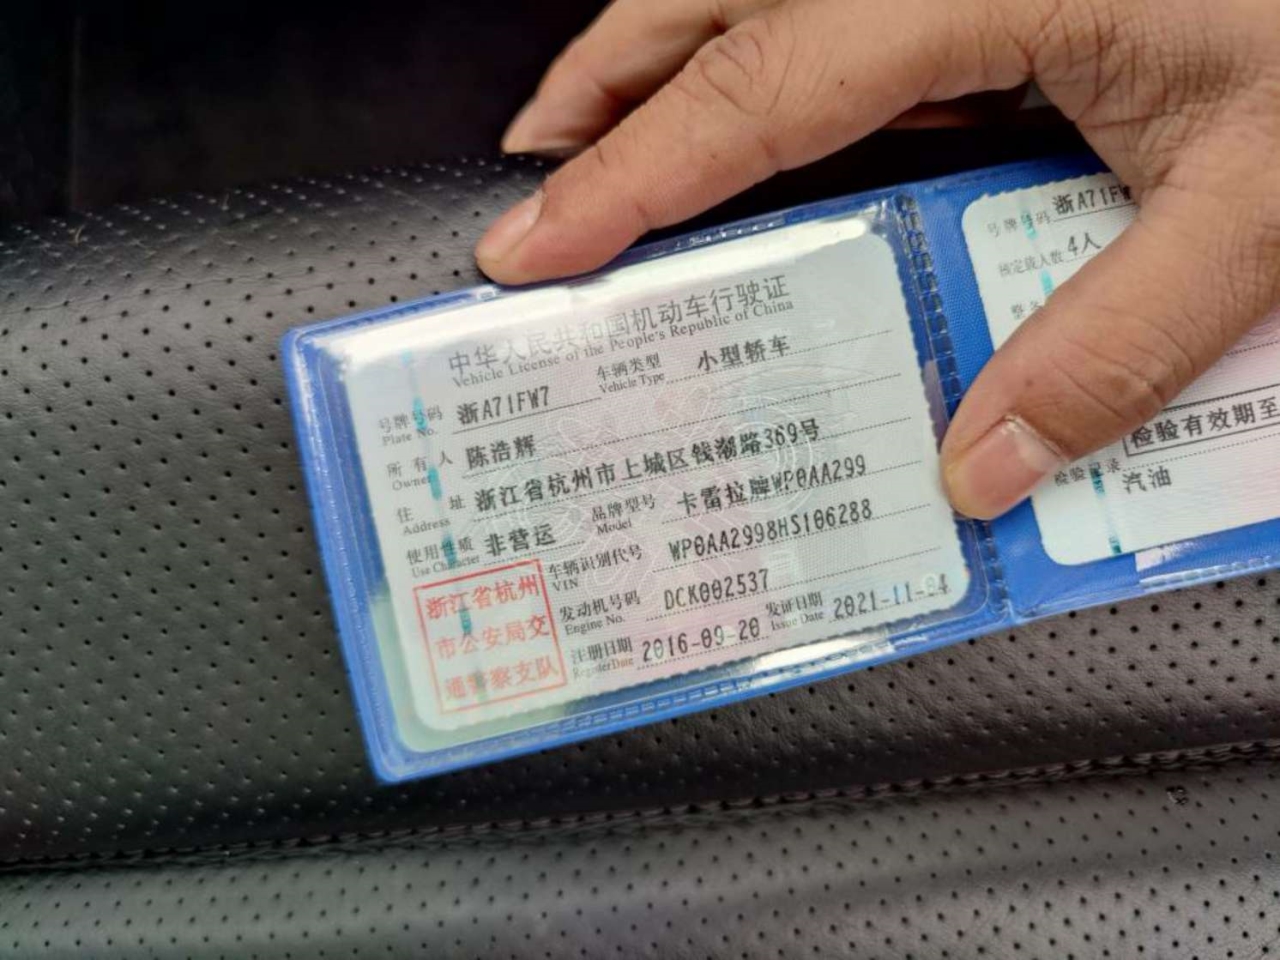 中华人民共和国机动车行驶证
Vehicle License of the People's Republic of China
号牌号码 浙A71FW7 车辆类型 小型轿车
Plate No. Vehicle Type
所有人 陈浩辉
Owner
住址 浙江省杭州市上城区钱潮路369号
Address
使用性质 非营运 品牌型号 卡雷拉牌WP0AA299
Use Character Model
车辆识别代号 WP0AA2998HS106288
VIN
发动机号码 DCK002537
Engine No.
注册日期 2016-09-20 发证日期 2021-11-04
Register Date Issue Date
浙江省杭州
市公安局交
通警察支队
号牌号码 浙A71FW
核定载人数 4人
整备
检验有效期至
检验记录
汽油